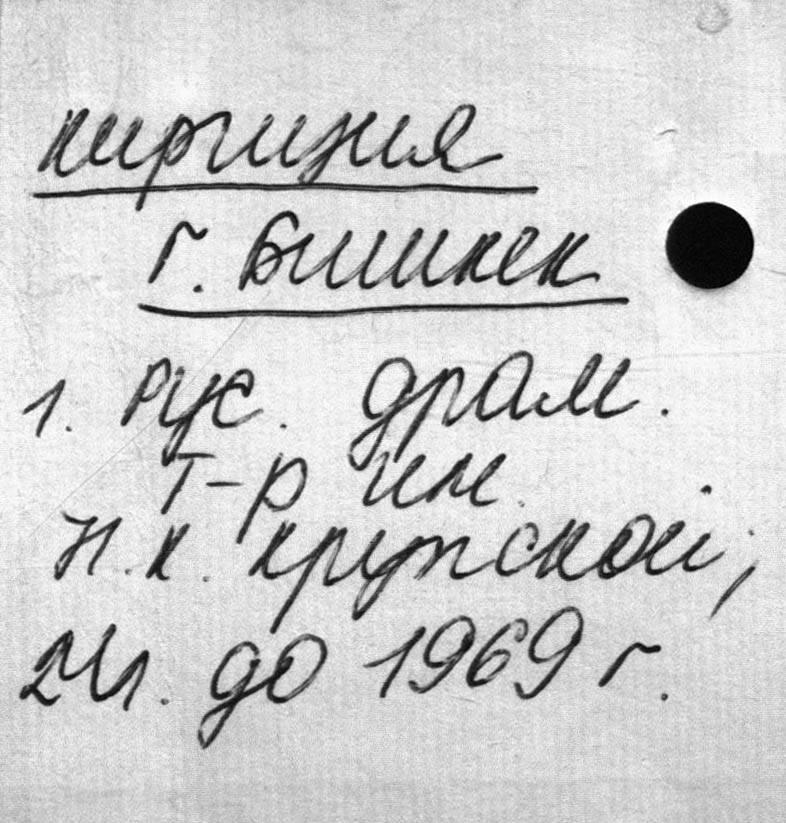 Киргизия
г. Бишкек
1. Рус. драм.
т-р им.
Н.К. Крупской,
до 1969 г.